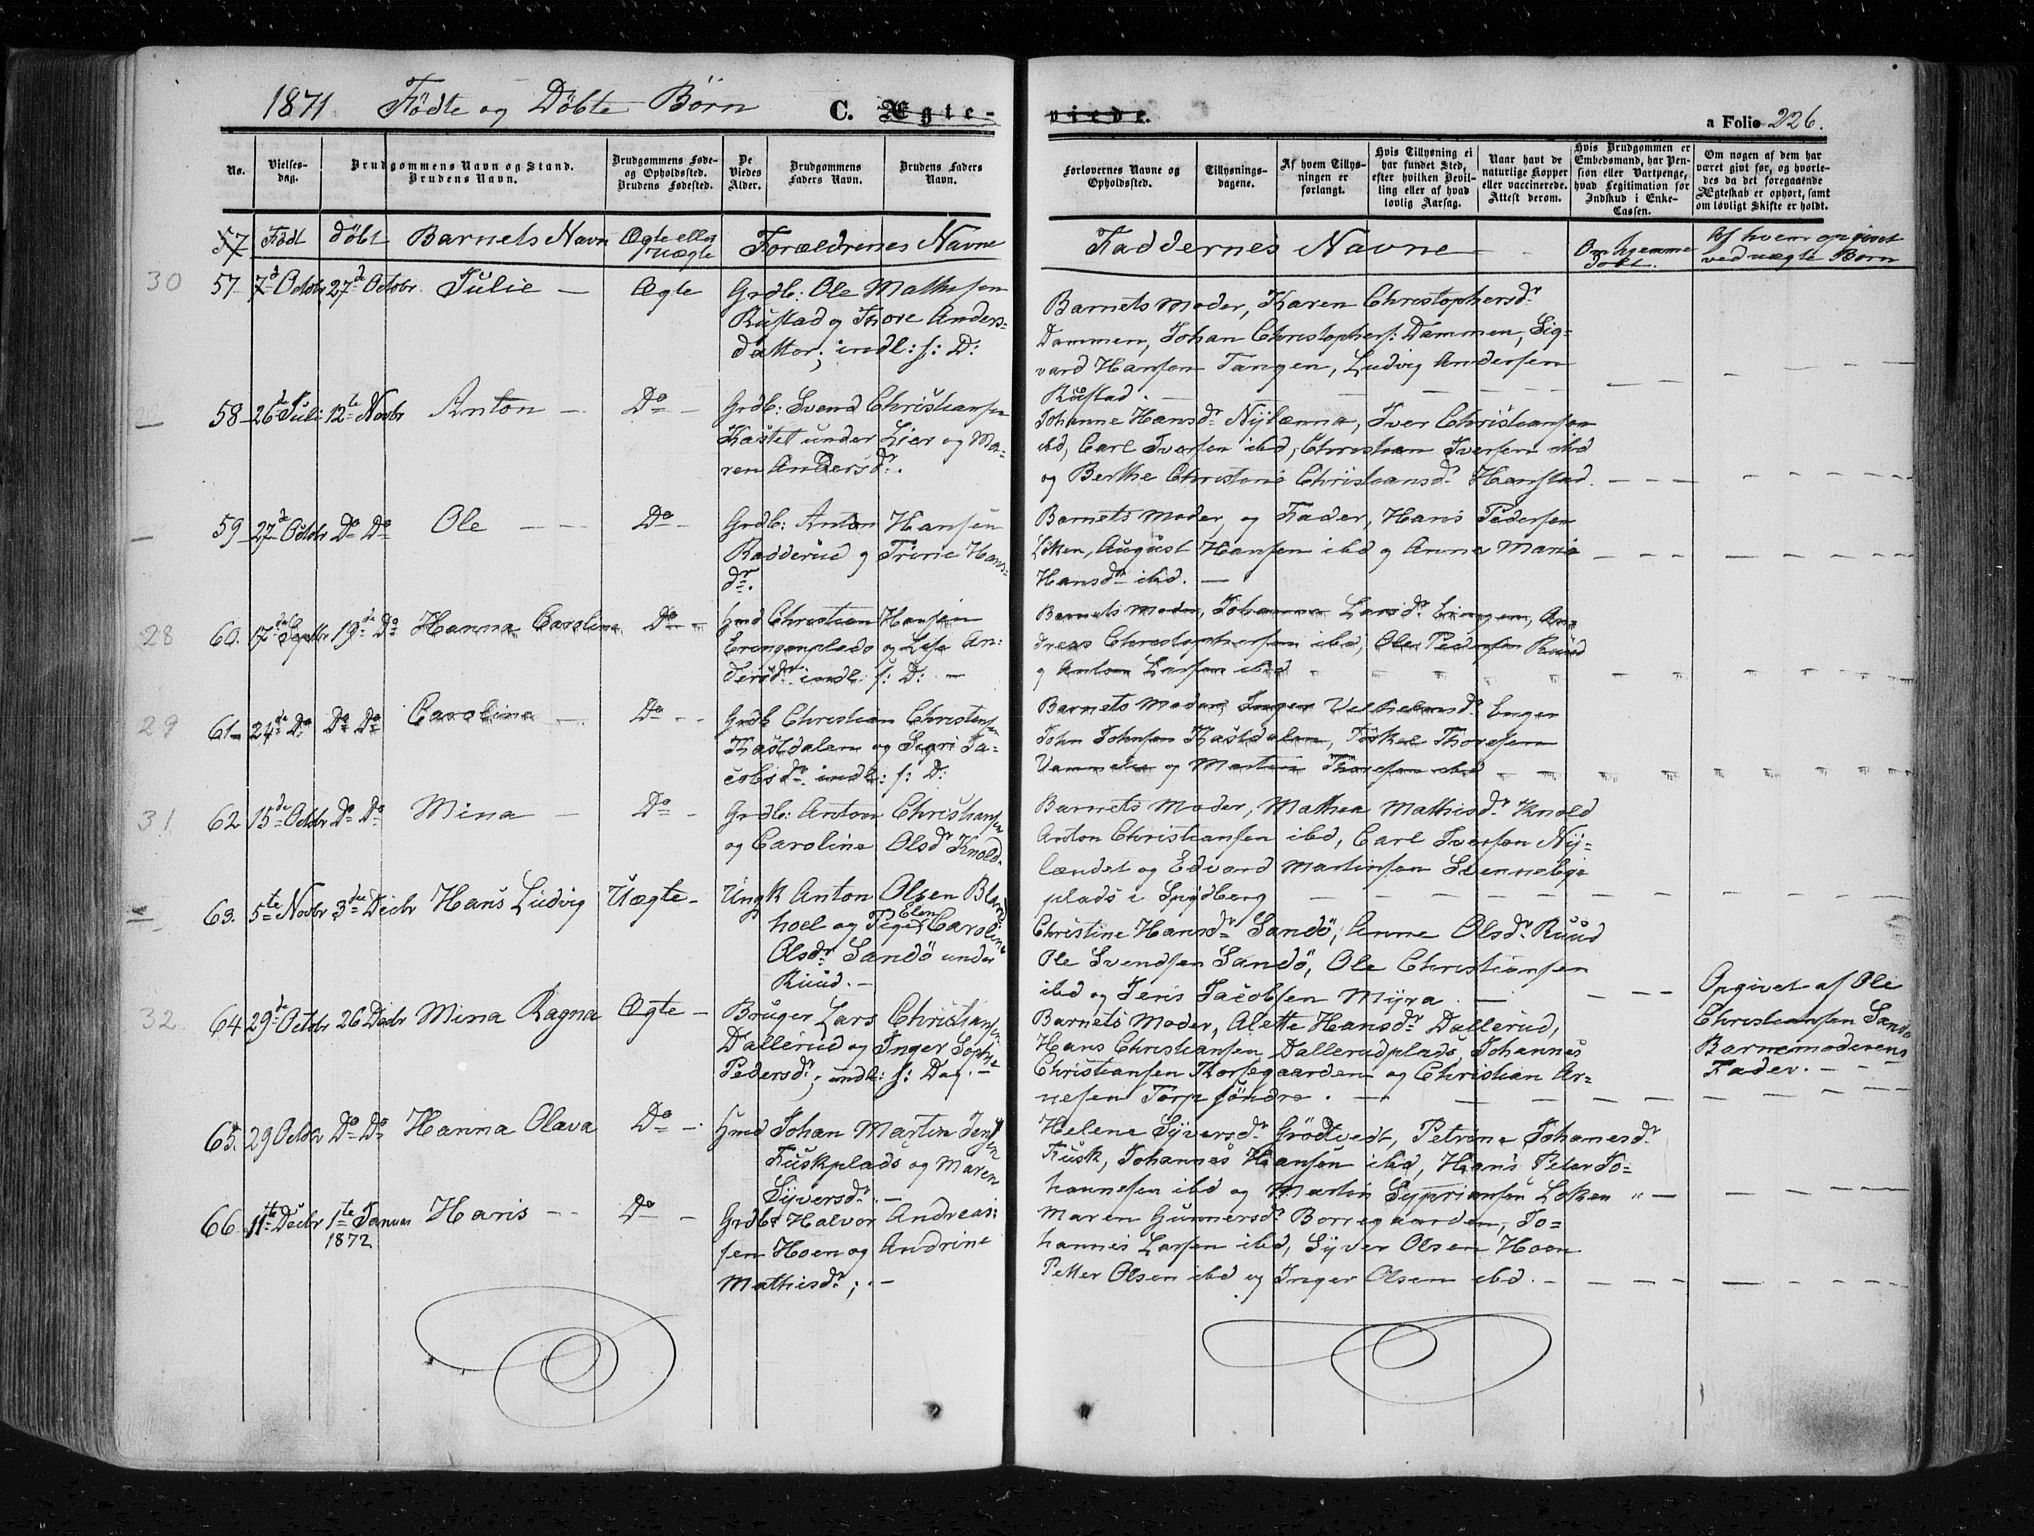 1871 Födte og Döbte Börn C. Ægte-
viede.
a Folio 226.
No.
Vielses-
dag.
Brudgommens Navn og Stand.
Brudens Navn.
Brudgommens Føde-
og Opholdssted.
Brudens Fødested.
De
Viedes
Alder.
Brudgommens
Faders Navn.
Brudens Faders
Navn.
Forlovernes Navne og
Opholdssted.
Tillysnings-
dagene.
Af hvem Tillys-
ningen er
forlangt.
Hvis Tillysning ei
har fundet Sted,
efter hvilken Bevil-
ling eller af hvad
lovlig Aarsag.
Naar havt de
naturlige Kopper
eller vaccinerede.
Attest derom.
Hvis Brudgommen er
Embedsmand, har Pen-
sion eller Vartpenge,
hvad Legitimation for
Indskud i Enke-
Cassen.
Om nogen af dem har
været gift før, og hvorle-
des da det foregaaende
Ægteskab er ophørt, samt
om lovligt Skifte er holdt.
57 Födt döbt Barnets Navn Ægte eller
uægte Forældrenes Navne
Faddernes Navne
Om hjemme
döbt.
Af hvem opgivet
ved uægte Börn
30 57 7de Octobr 27de Octobr. Julie — Ægte Grdb: Ole Mathisen
Rustad og Thore Anders-
datter; indl: f: D:
Barnets Moder, Karen Christophersdr
Dammen, Johan Christophers: Dammen, Sig-
vard Hansen Tangen, Ludvig Andersen
Rustad.
58 26de Juli 12te Novbr Anton — Do — Grdb: Svend Christiansen
Kastet under Lier og Ma-
ren Andersdr.
Johanne Hansdr Nylænna, Iver Christiansen
ibd, Carl Iversen ibd, Christian Iversen ibd
og Berthe Christine Christiansdr Hanstad.
59 27de Octobr Do Do Ole — Do — Grdb: Anton Hansen
Radderud og Trine Hans-
dr.
Barnets Moder og Fader, Hans Pedersen
Löken, August Hansen ibd og Anne Marie
Hansdr ibd.
28 60. 17de Septbr 19de Do Hanna Caroline Do — Hmd Christian Hansen
Eringenplads og Lise An-
dersdr indl: f: D:
Barnets Moder, Johanna Larsdr Eingen, An-
dreas Christophersen ibd, Ole Pedersen Ruud
og Anton Larsen ibd
29 61 24de Do Do Do Caroline — Do — Grdb Christian Christensen
Kastdalen og Sigri Ja-
cobsdr indl: f: D:
Barnets Moder, Inger Velhelmsdr Enger
John Johnsen Kastdalen, Toskel Thoresen
og Martin Thoresen ibd
31. 62 15de Octobr Do Do Mina — Do — Grdb: Anton Christiansen
og Caroline Olsdr Knold.
Barnets Moder, Mathea Mathisdr Knold
Anton Christiansen ibd, Carl Iversen Ny-
lændet og Edvard Martinsen Svenneby
plads i
63. 5te Novbr 3die Decbr Hans Ludvig Uægte — Ungk Anton Olsen
hoel og Pige Elen Caroline
Olsdr Sandö under
Ruud. —
Christine Hansdr Sandö, Anne Olsdr Ruud
Ole Svendsen Sandö, Ole Christiansen
ibd og Jens Jacobsen Myra.
Opgivet af Ole
Christiansen Sandö
Barnemoderens
Fader.
32. 64 29de Octobr 26 Decbr Mina Ragna Ægte — Bruger Lars Christiansen
Dallerud og Inger Sophie
Pedersdr; indl: f: Dag. —
Barnets Moder, Alette Hansdr Dallerud,
Hans Christiansen Dallerudplads, Johannes
Christiansen Thorsegaarden og Christian Ar-
nesen Torp söndre.
65. 29 Octobr Do Do Hanna Olava Do — Hmd Johan Martin Jensen
Fuskplads og Maren
Syversdr. —
Helene Syversdr Grödtvedt, Petrine Johanesdr
Fusk, Johannes Hansen ibd, Hans Peter Jo-
hannesen ibd og Martin Syprianssen Löken
66. 11te Decbr 1te Januar
1872 Hans — Do — Grdbr Halvor Andreas-
sen Hoen og Andrine
Mathisdr; . —
Maren Gunnersdr Borregaarden, Jo-
hannes Larsen ibd, Syver Olsen Hoen
Petter Olsen ibd og Inger Olsen ibd.